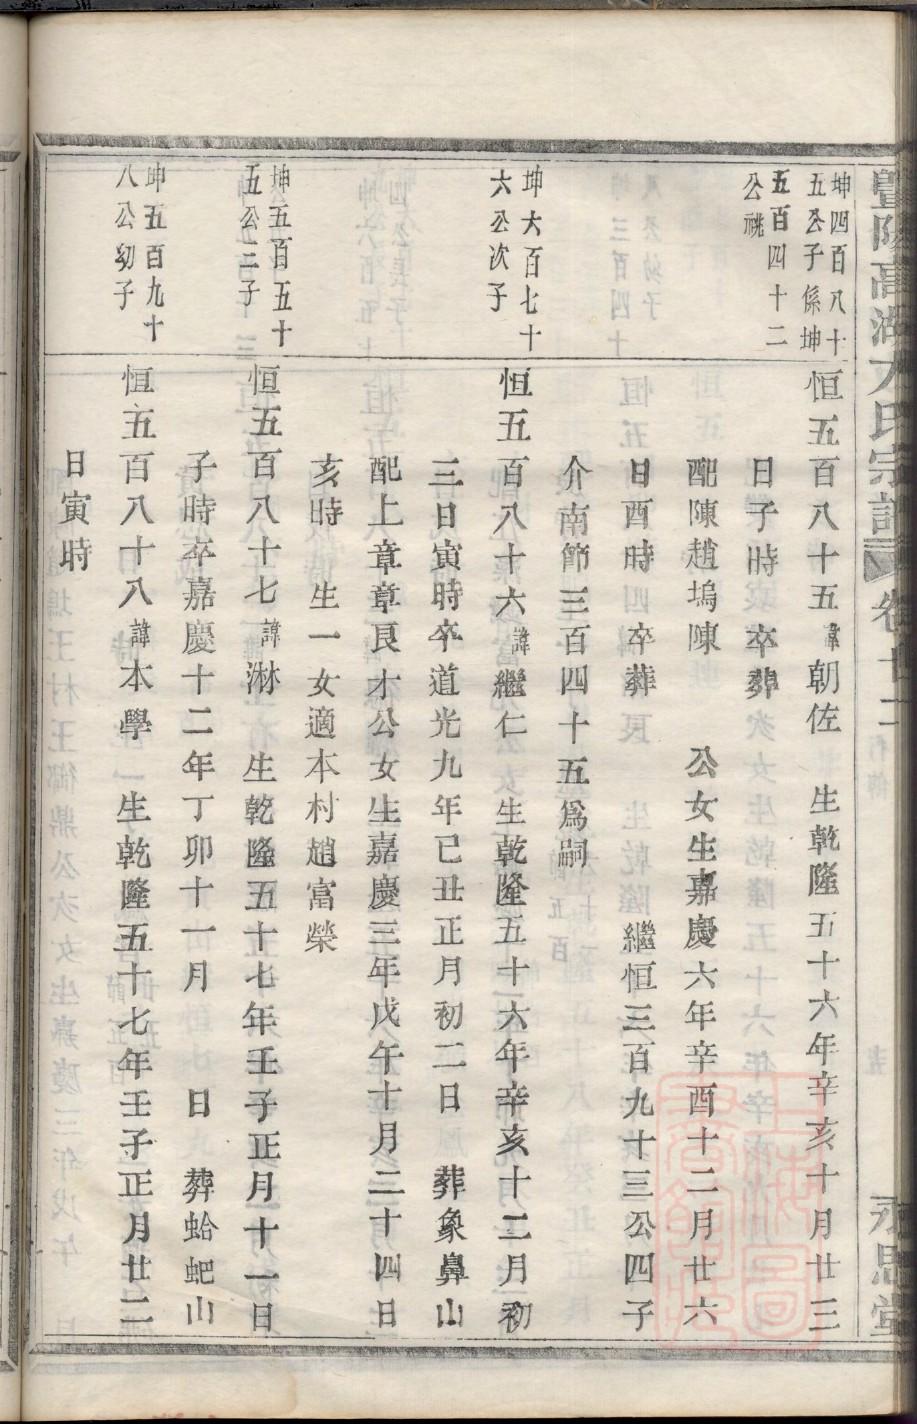 暨陽高湖 氏宗譜 卷廿二 永思堂
坤四百八十
五公子係坤
五百四十二
公祧
恒五百八十五諱朝佐 生乾隆五十六年辛亥十月廿三
日子時 卒葬
配陳趙塢陳 公女生嘉慶六年辛酉十二月廿六
日酉時 卒葬 繼恒三百九十三公四子
介南節三百四十五爲嗣
坤六百七十
六公次子
恒五百八十六諱繼仁生乾隆五十六年辛亥十二月初
三日寅時卒道光九年已丑正月初二日 葬象鼻山
配上章章艮才公女生嘉慶三年戊午十月二十四日
亥時 生一女適本村趙富榮
坤五百五十
五公二子
恒五百八十七諱淋 生乾隆五十七年壬子正月二十一日
子時卒嘉慶十二年丁卯十一月 日 葬蛤蚆山
坤五百九十
八公幼子
恒五百八十八諱本學 生乾隆五十七年壬子正月廿二
日寅時